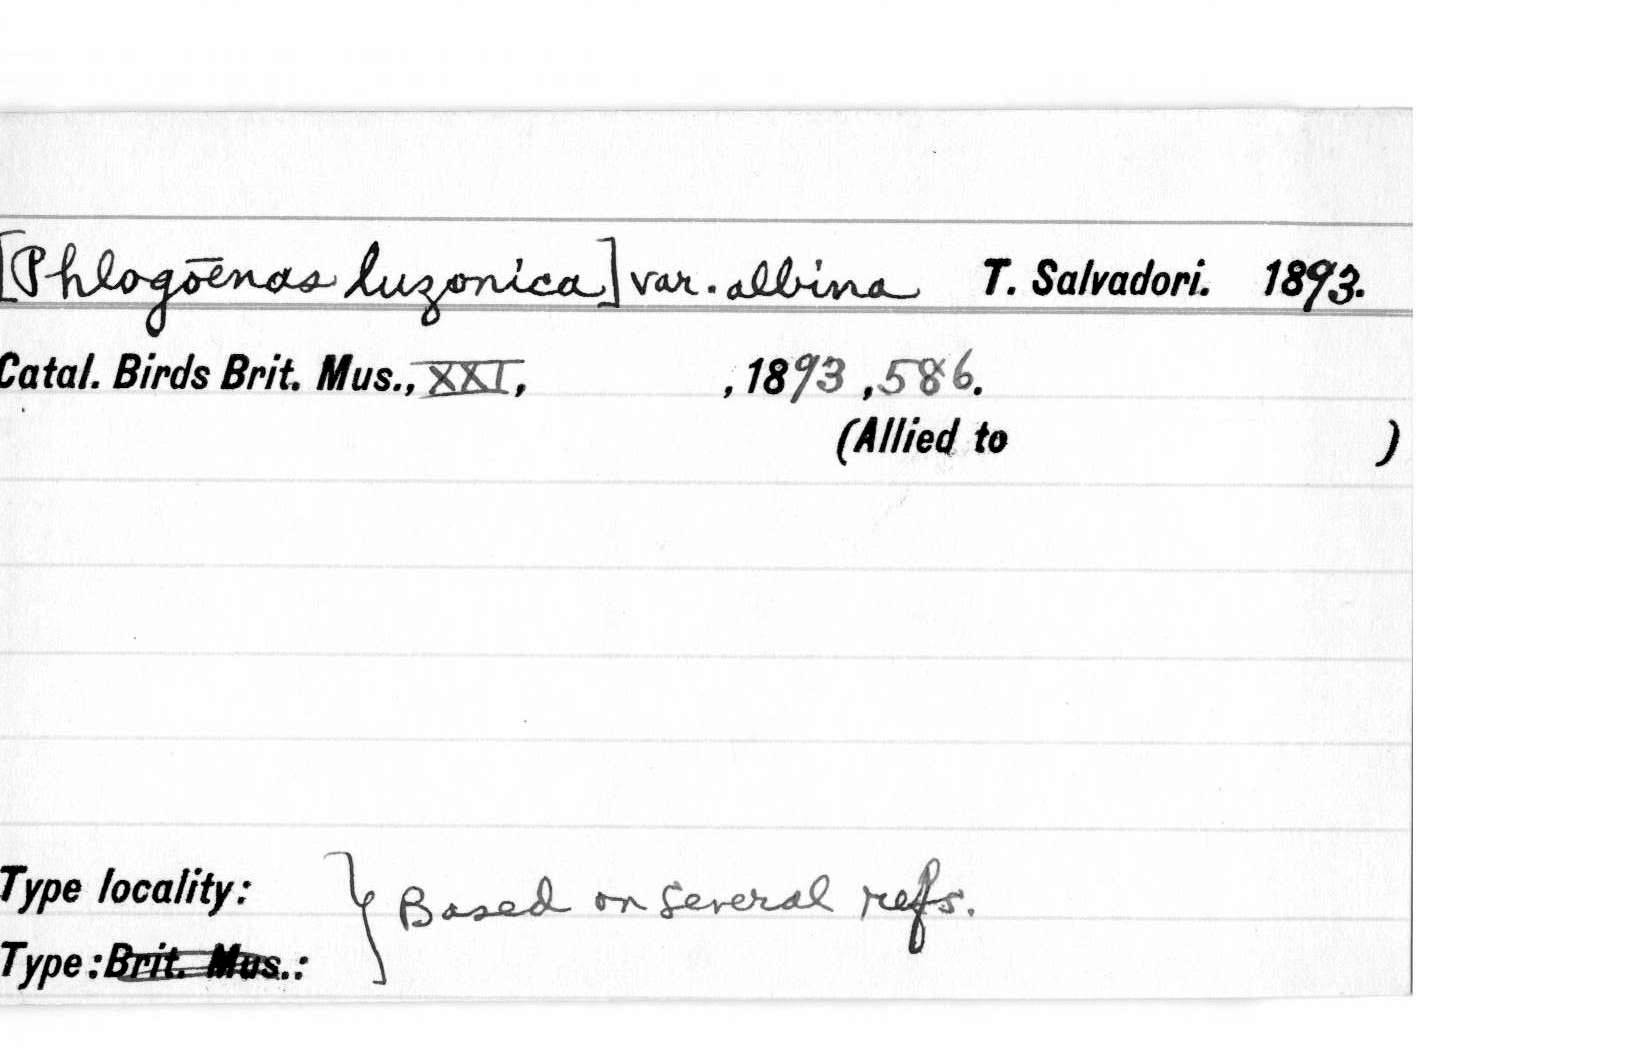 [Phlogōenas luzonica] var. albina T. Salvadori. 1893.
Catal. Birds Brit. Mus., XXI, , 1893, 586.
(Allied to )
Type locality: } Based on several refs.
Type: Brit. Mus.: